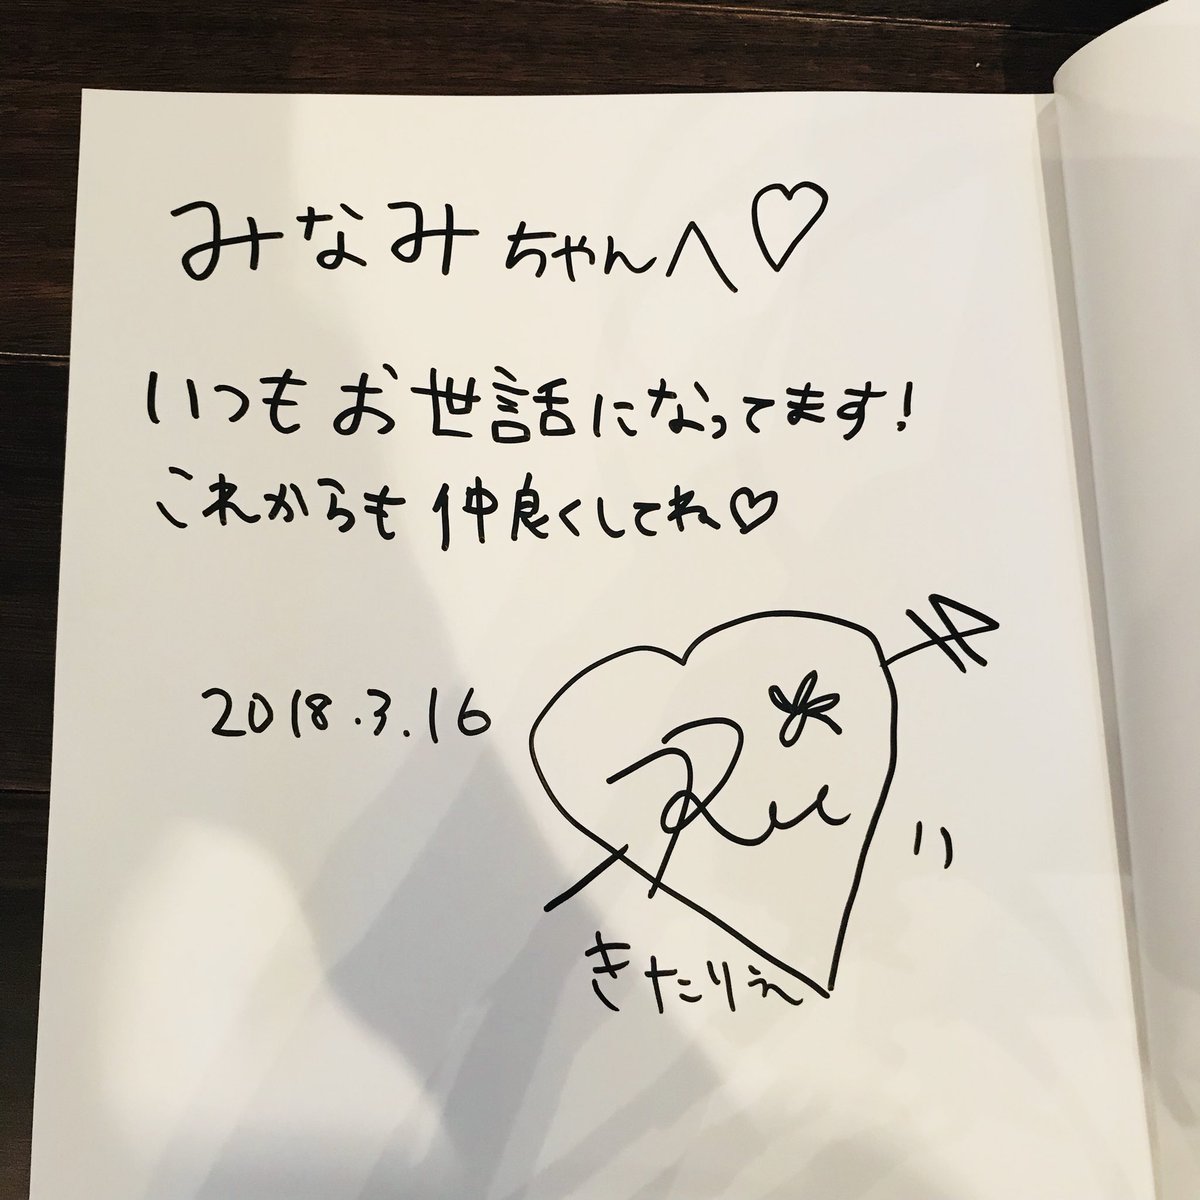 みなみちゃんへ♡
いつもお世話になってます!
これからも仲良くしてね♡
2018.3.16
Rie
きたりえ